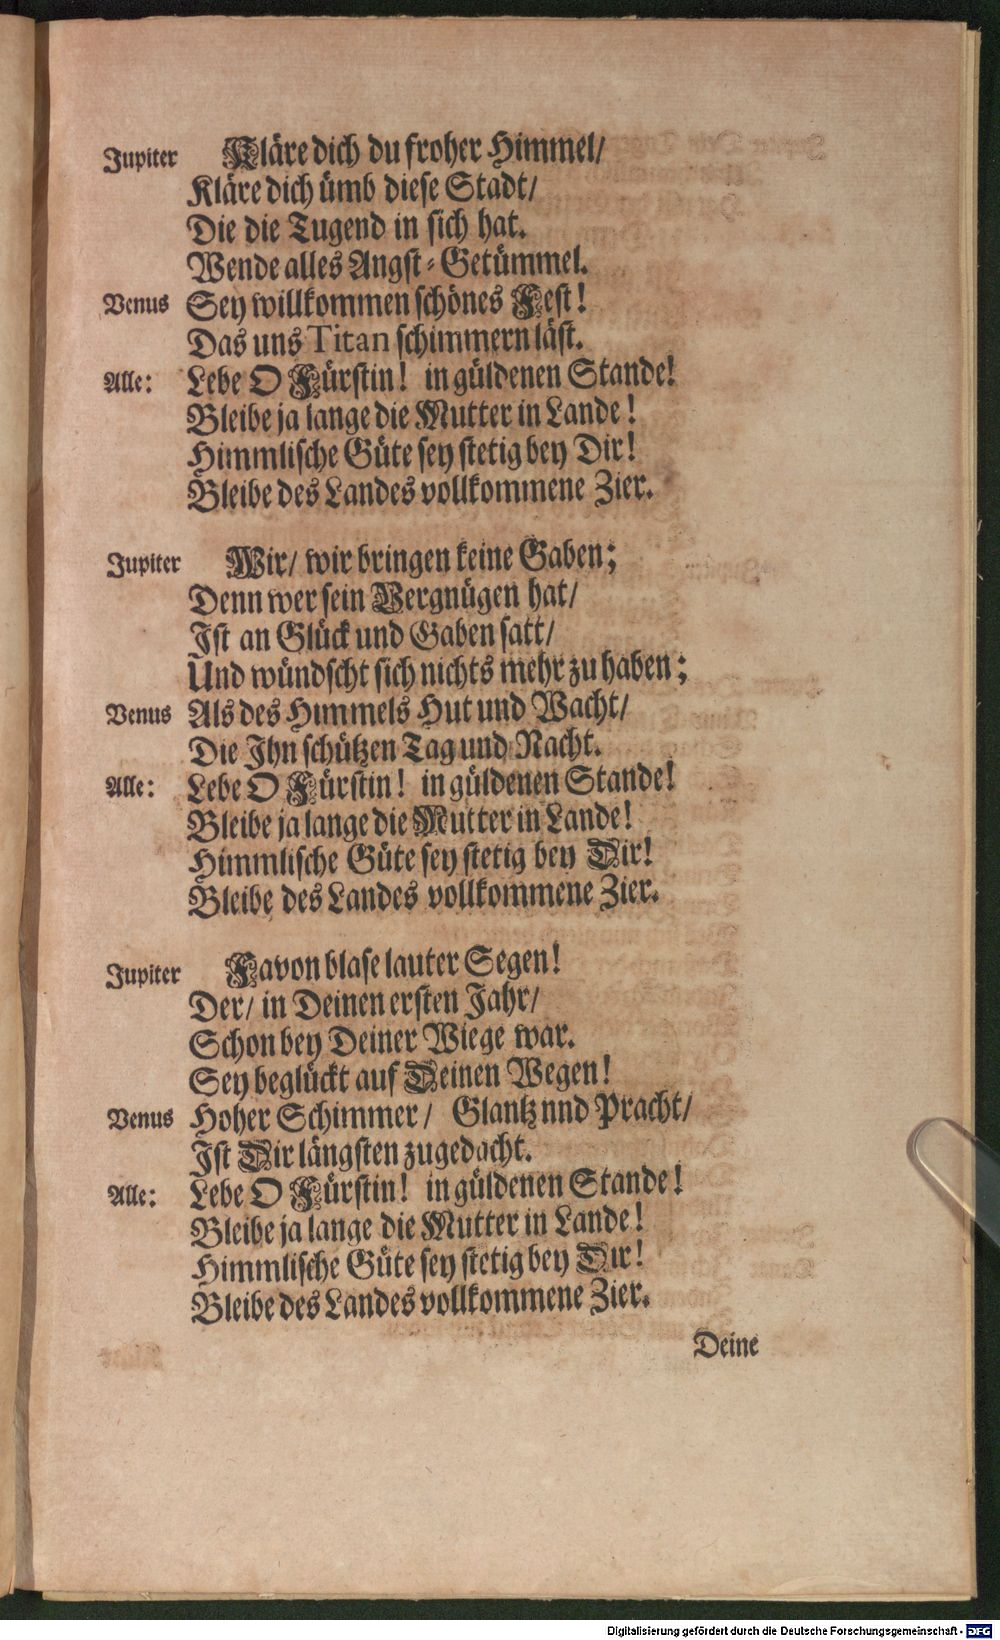 Jupiter Kläre dich du froher Himmel/
Kläre dich ümb diese Stadt/
Die die Tugend in sich hat.
Wende alles Angst-Getümmel.
Venus Sey willkommen schönes Fest!
Das uns Titan schimmern läst.
Alle: Lebe O Fürstin! in güldenen Stande!
Bleibe ja lange die Mutter in Lande!
Himmlische Güte sey stetig bey Dir!
Bleibe des Landes vollkommene Zier.
Jupiter Wir/ wir bringen keine Gaben;
Denn wer sein Vergnügen hat/
Ist an Glück und Gaben satt/
Und wündscht sich nichts mehr zu haben;
Venus Als des Himmels Hut und Wacht/
Die Ihn schützen Tag und Nacht.
Alle: Lebe O Fürstin! in güldenen Stande!
Bleibe ja lange die Mutter in Lande!
Himmlische Güte sey stetig bey Dir!
Bleibe des Landes vollkommene Zier.
Jupiter Favon blase lauter Segen!
Der/ in Deinen ersten Jahr/
Schon bey Deiner Wiege war.
Sey beglückt auf Deinen Wegen!
Venus Hoher Schimmer/ Glantz nnd Pracht/
Ist Dir längsten zugedacht.
Alle: Lebe O Fürstin! in güldenen Stande!
Bleibe ja lange die Mutter in Lande!
Himmlische Güte sey stetig bey Dir!
Bleibe des Landes vollkommene Zier.
Deine
Digitalisierung gefördert durch die Deutsche Forschungsgemeinschaft - DFG